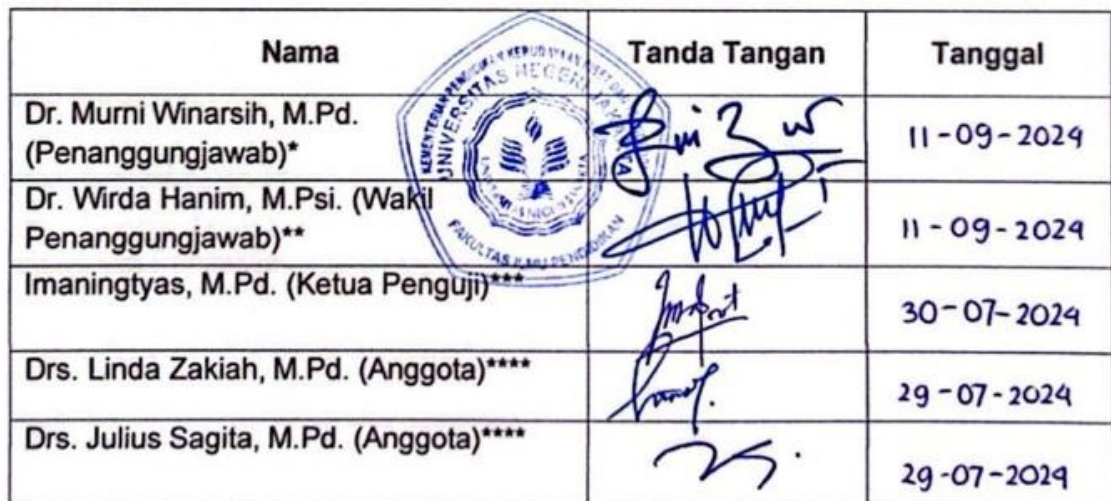 Nama Tanda Tangan Tanggal
Dr. Murni Winarsih, M.Pd.
(Penanggungjawab)* 11-09-2024
Dr. Wirda Hanim, M.Psi. (Wakil
Penanggungjawab)** 11-09-2024
Imaningtyas, M.Pd. (Ketua Penguji)*** 30-07-2024
Drs. Linda Zakiah, M.Pd. (Anggota)**** 29-07-2024
Drs. Julius Sagita, M.Pd. (Anggota)**** 29-07-2024
UNIVERSITAS NEGERI JAKARTA
FAKULTAS ILMU PENDIDIKAN